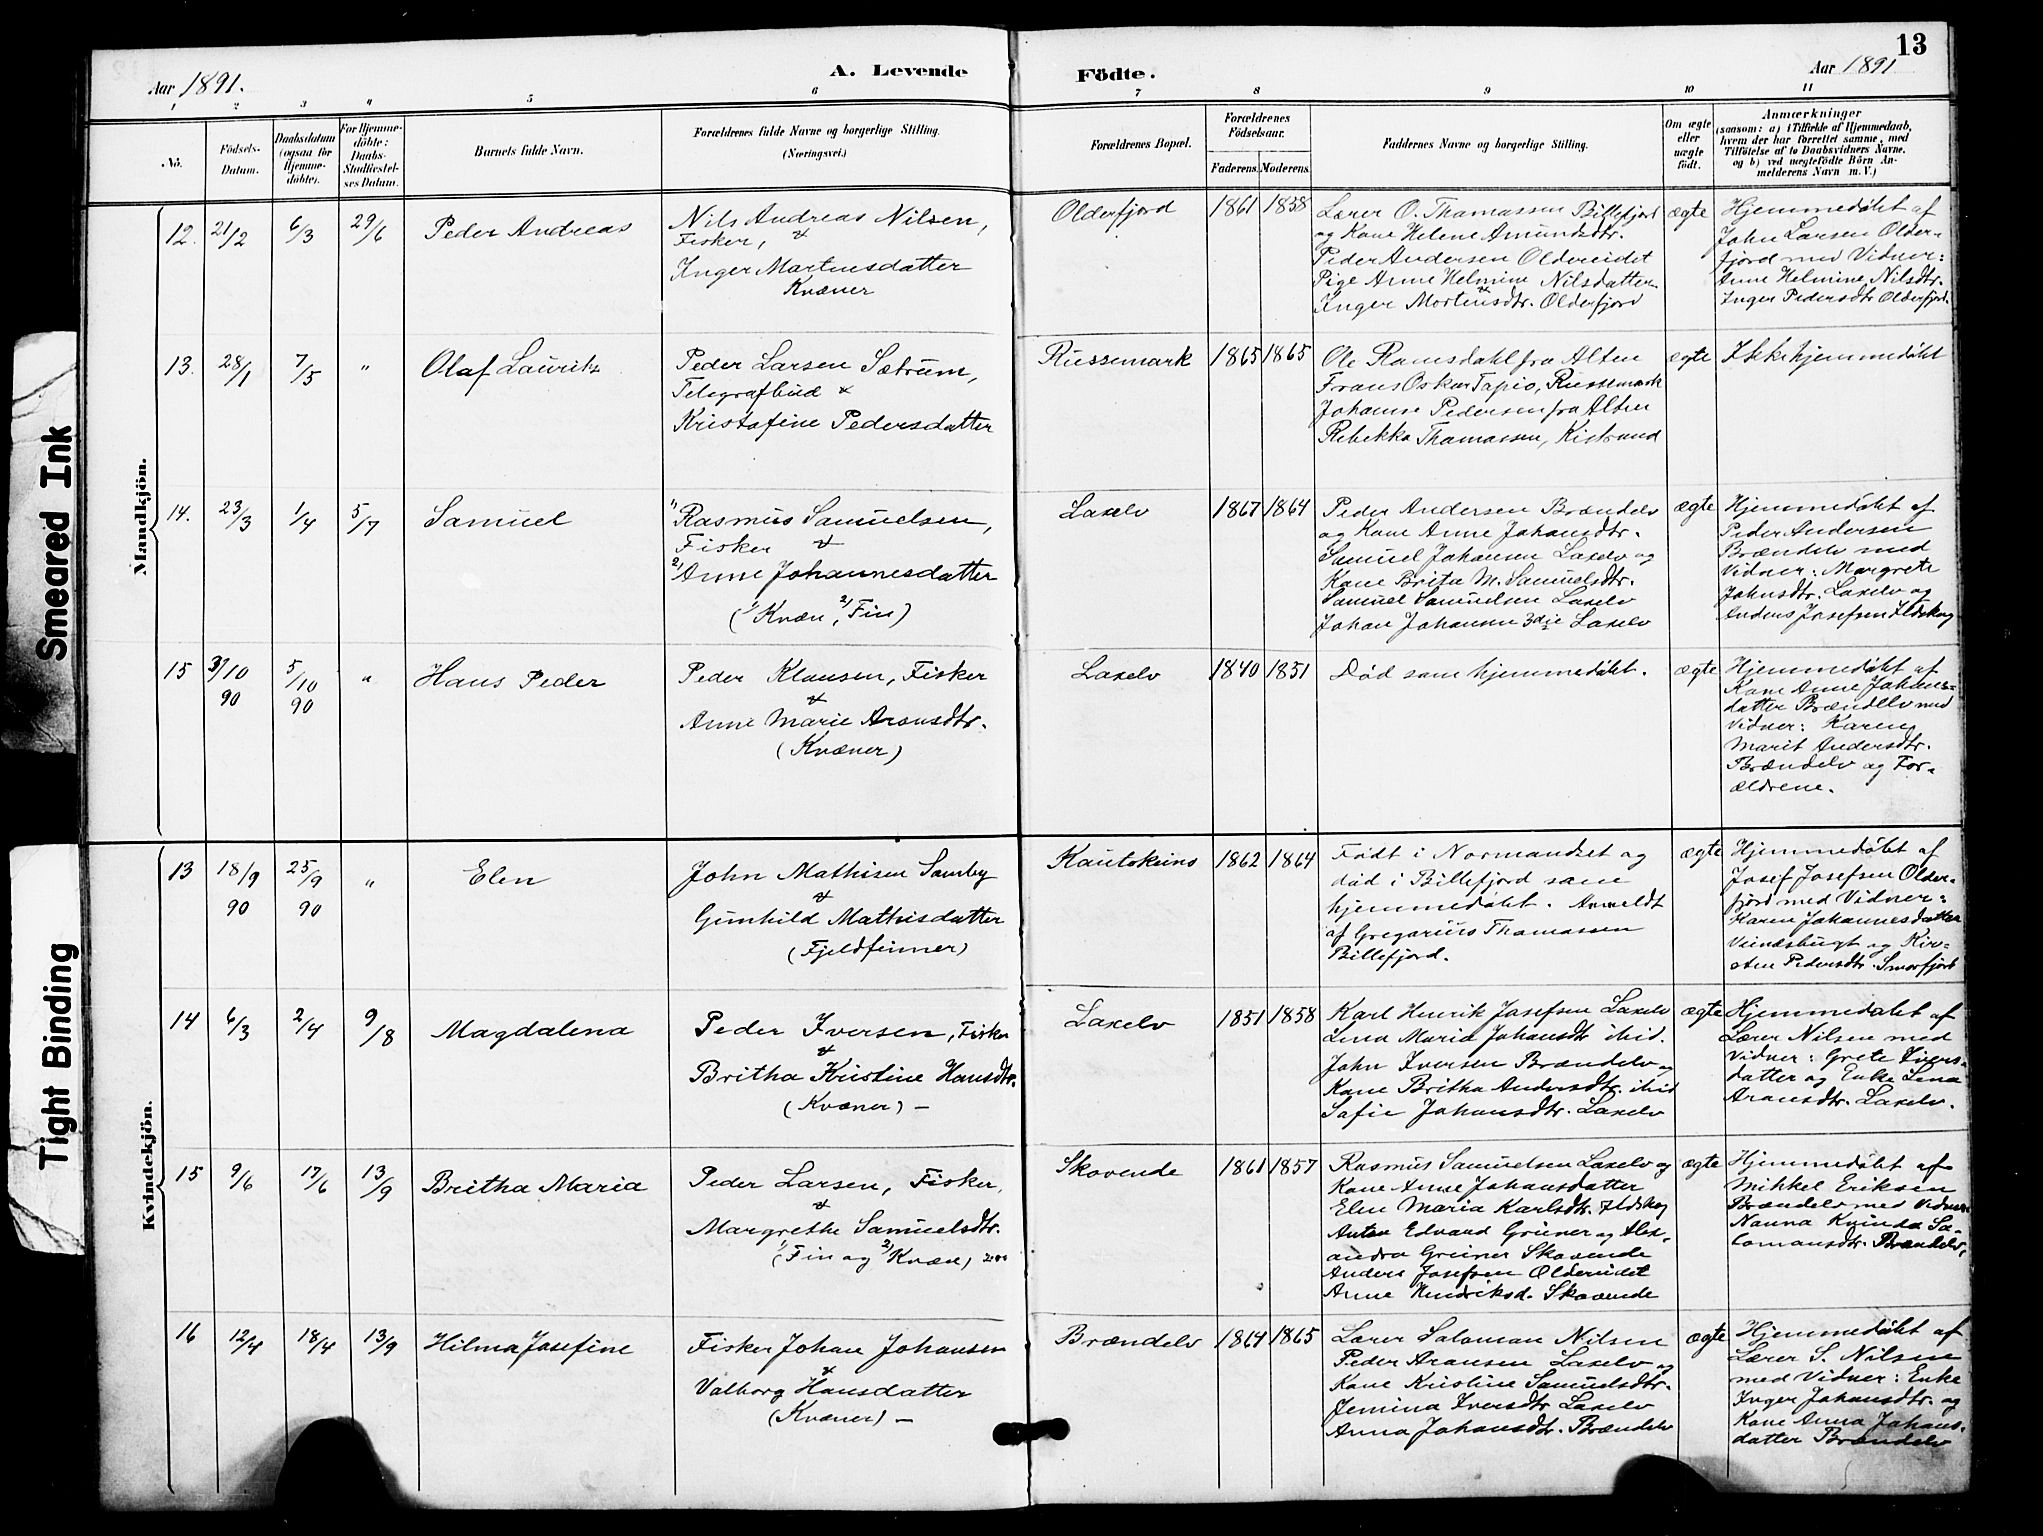 13
Aar 1891.
A. Levende Födte.
Aar 1891
1 2 3 4 5 6 7 8 9 10 11
No.
Födsels-
Datum.
Daabsdatum
(ogsaa for
Hjemme-
döbte).
For Hjemme-
döbte:
Daabs-
Stadfæstel-
ses Datum.
Barnets fulde Navn.
Forældrenes fulde Navne og borgerlige Stilling.
(Næringsvei.)
Forældrenes Bopæl.
Forældrenes
Födselsaar.
Faderens.
Moderens.
Faddernes Navne og borgerlige Stilling.
Om ægte
eller
uægte
födt.
Anmærkninger
(saasom: a) i Tilfælde af Hjemmedaab,
hvem der har forrettet samme, med
Tilföielse af to Daabsvidners Navne,
og b) ved uegtefödte Börn An-
melderens Navn m. V.)
Mandkjön.
12. 21/2 6/3 29/6 Peder Andreas
Nils Andreas Nilsen,
Fisker, &
Inger Martinsdatter
Kvæner
Olderfjord 1861 1858
Lærer O. Thomassen Billefjord
og Kone Helene Amundsdtr.
Peder Andersen Oldereidet
Pige Anne Helmine Nilsdatter
& Inger Mortensdtr. Olderfjord
ægte
Hjemmedøbt af
John Larsen Older-
fjord med Vidner:
Anne Helmine Nilsdtr.
Inger Pedersdtr Olderfjord.
13. 28/1 7/5 " Olaf Lauritz
Peder Larsen Sætrum,
Telegrafbud &
Kristofine Pedersdatter
Russemark 1865 1865
Ole Ramsdahl fra Alten
Frans Oskar Tapio, Russemark
Johanne Pedersen fra Alten
Rebekka Thomassen, Kistrand
ægte
Ikke hjemmedøbt
14. 23/3 1/4 5/7 Samuel
1) Rasmus Samuelsen,
Fisker &
2) Anne Johannesdatter
(1) Kvæn, 2) Fin)
Laxelv 1867 1864
Peder Andersen Brændelv
og Kone Anne Johansdtr.
Samuel Johansen Laxelv og
Kone Brita M. Samuelsdtr.
Samuel Samuelsen Laxelv
Johan Johansen 3die Laxelv
ægte
Hjemmedøbt af
Peder Andersen
Brændelv med
Vidner: Margrete
Johnsdtr. Laxelv og
Anders Josefsen Ildskog
15 3/10 90 5/10 90 " Hans Peder
Peder Klausen, Fisker
&
Anne Marie Aronsdtr.
(Kvæner)
Laxelv 1840 1851
Død som hjemmedøbt.
ægte
Hjemmedøbt af
Kone Anne Johans-
datter Brændelv med
Vidner: Karen
Marit Andersdtr.
Brændelv og For-
ældrene.
Kvindekjön.
13 18/9 90 25/9 90 " Elen
John Mathisen Somby
&
Gunhild Mathisdatter
(Fjeldfinner)
Kautokeino 1862 1864
Født i Normandset og
død i Billefjord som
hjemmedøbt. Anmeldt
af Gregorius Thomassen
Billefjord.
ægte
Hjemmedøbt af
Josef Josefsen Older-
fjord med Vidner:
Karen Johannesdatter
og Kir-
sten Pedersdtr. Smørfjord
14 6/3 2/4 9/8 Magdalena
Peder Iversen, Fisker
&
Britha Kristine Hansdtr.
(Kvæner) –
Laxelv 1851 1858
Karl Henrik Josefsen Laxelv
Lina Maria Johansdtr ibid.
John Iversen Brændelv og
Kone Britha Andersdtr. ibid
Sofie Johansdtr. Laxelv
ægte
Hjemmedøbt af
Lærer Nilsen med
Vidner: Grete Ivers-
datter og Enke Lena
Aronsdtr. Laxelv.
15 9/6 17/6 13/9 Britha Maria
Peder Larsen, Fisker,
&
Margrethe Samuelsdtr.
(1) Fin og 2) Kvæn)
Skovende 1861 1857
Rasmus Samuelsen Laxelv og
Kone Anne Johansdatter
Elen Maria Karlsdtr. Ildskog
Anton Edvard Grüner og Alex-
andra Grüner Skovende
Anders Josefsen Oldereidet
Anne Hendriksd. Skovende
ægte
Hjemmedøbt af
Mikkel Eriksen
Brændelv med Vidner
Nanna Kvinda Sa-
lomonsdtr. Brændelv.
16 12/4 18/4 13/9 Hilma Josefine
Fisker Johan Johansen
&
Valborg Hansdatter
(Kvæner) –
Brændelv 1864 1865
Lærer Saloman Nilsen
Peder Aronsen Laxelv og
Kone Kristine Samuelsdtr.
Jemina Iversdtr Laxelv
Anna Johansdtr. Brændelv
ægte
Hjemmedøbt af
Lærer S. Nilsen
med Vidner: Enke
Inger Johansdtr. og
Kone Anna Johans-
datter Brændelv
Smeared Ink
Tight Binding